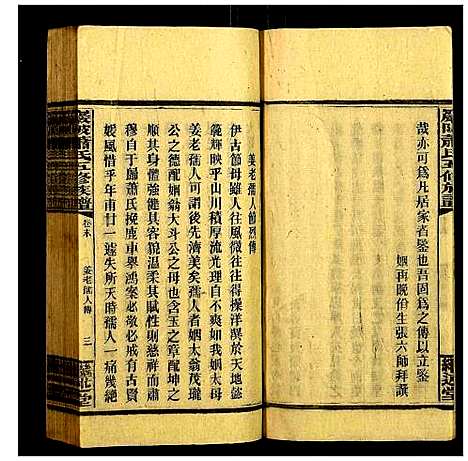 哉亦可爲凡居家者鑒也吾固爲之傳以立鑒
姻再晚俗生張六師拜譔
姜老孺人節烈傳
伊古節母雖人往風微往往得操洋溢於天地懿
範輝映乎山川其積厚流光理自不爽如我太母
姜老孺人可爲先後濟美矣孺人者姻太翁茂瓏
公之德配姻翁大斗公之母也含玉之章配坤之
順其身體強健其行誼溫柔其賦性則慈祥而肅
穆自于歸蕭氏挽鹿車舉鴻案必敬必戒有古賢
媛風惜乎年甫廿一遽失所天時孺人一痛幾絕
巖陂蕭氏五修族譜
卷末
姜老孺人傳
三